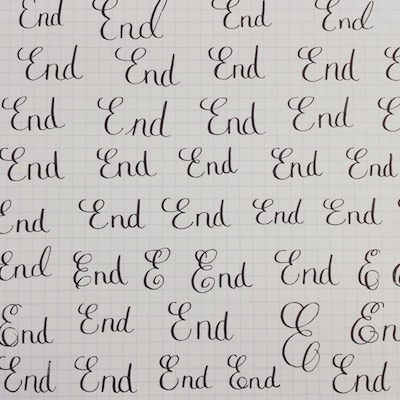 End End End End
End End End End E
End End End End E
End End End End End
End End End End End
End End E End End E E
End End End E En
End End End End End